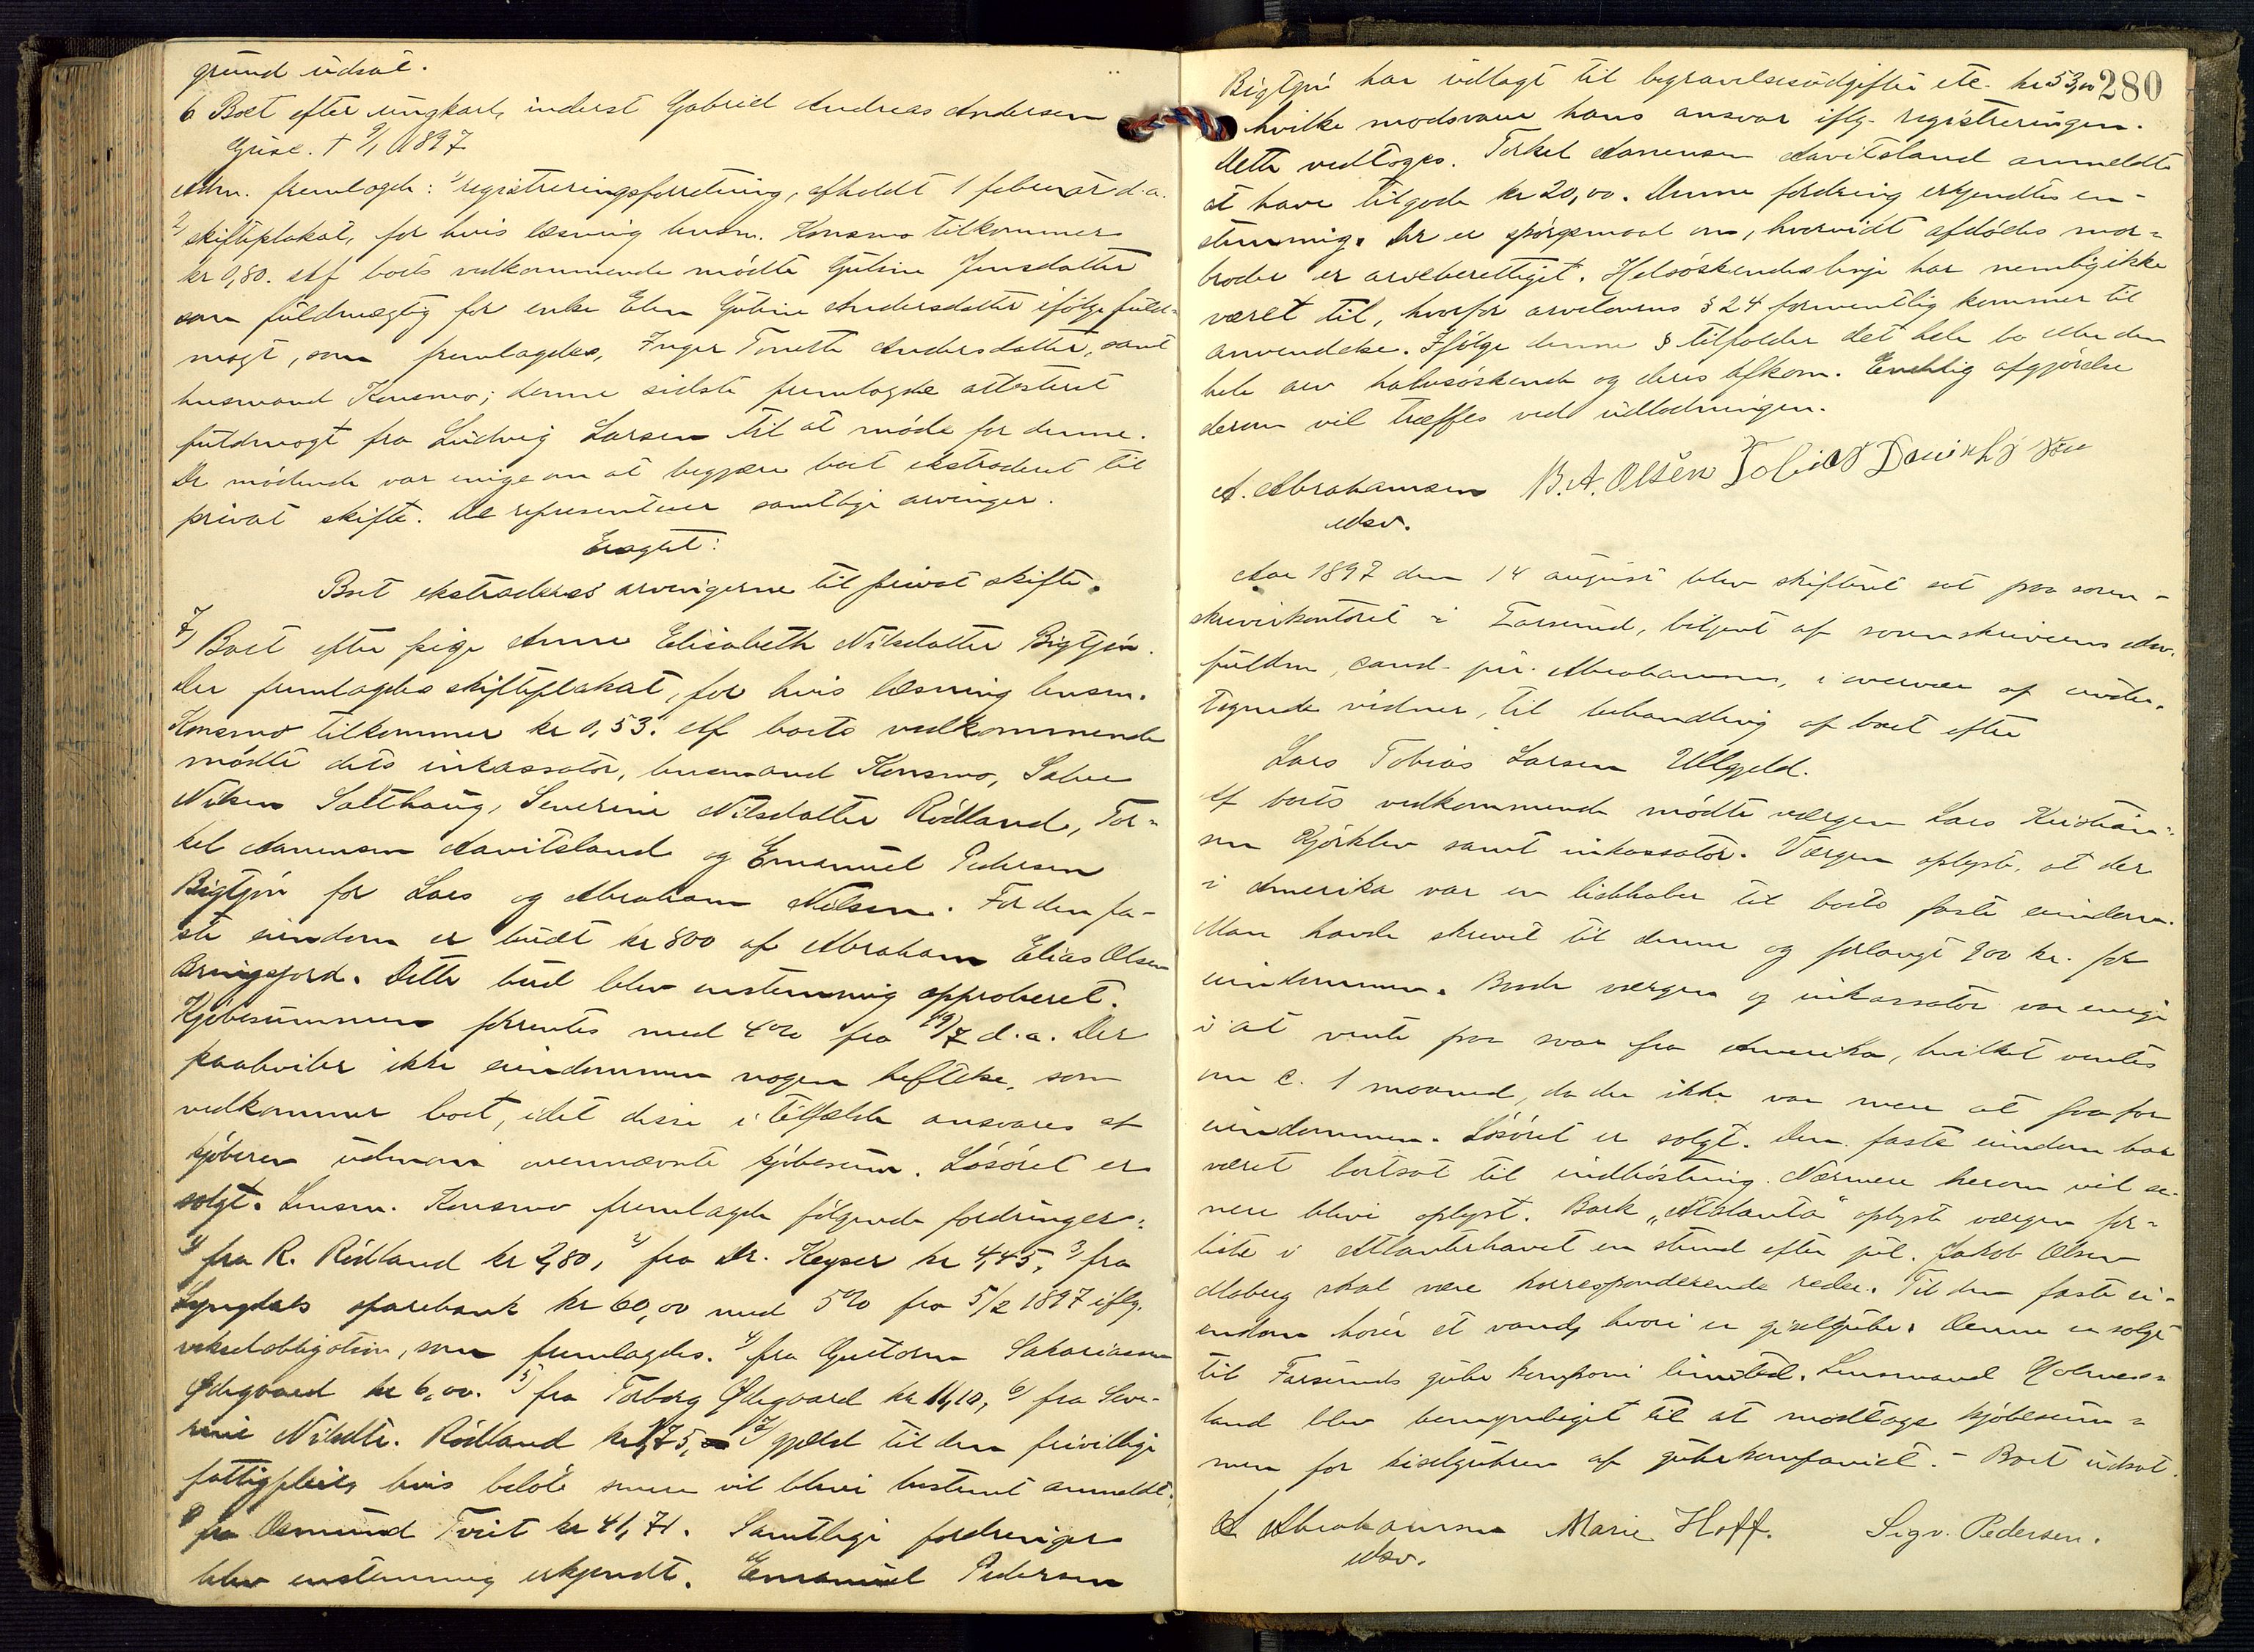 grund udsat.
6 Boet efter ungkarl, inderst Gabriel Andreas Andersen
† 9/1 1897
Adm. fremlagde: 1) registreringsforretning, afholdt 1 februar d.a.
2) skifteplakat, for hvis læsning lensm. Konsmo tilkommer
kr 0,80. Af boets vedkommende mödte Gutine Jensdatter
som fuldmægtig for enke Elen Gutine Andersdatter ifölge fuld-
magt, som fremlagdes, Inger Tonette Andersdatter, samt
lensmand Konsmo; denne sidste fremlagde attesteret
fuldmagt fra Ludvig Larsen til at möde for denne.
De mödende var enige om at begjære boet ekstraderet til
privat skifte. De repræsenterer samtlige arvinger.
Eragtet:
Boet ekstraderes arvingerne til privat skifte.
7) Boet efter pige Anne Elisabeth Nilsdatter Bigtjön.
Der fremlagdes skifteplakat, for hvis læsning lensm.
Konsmo tilkommer kr 0,53. Af boets vedkommende
mödte dets inkassator, lensmand Konsmo, Salve
Nilsen Salthaug, Severine Nilsdatter Rödland, Tor-
kel Aanensen Aavitsland og Emanuel Pedersen
Bigtjön for Lars og Abraham Nilsen. For den fa-
ste eiendom er budt kr 800 af Abraham Elias Olsen
Bringsjord. Dette bud blev enstemmig approberet.
Kjöbesummen forrentes med 4% fra 19/7 d.a. Der
paahviler ikke eiendommen nogen heftelse, som
vedkommer boet, idet disse i tilfælde ansvares af
kjöberen udenom ovennævnte kjöbesum. Lösöret er
solgt. Lensm. Konsmo fremlagde fölgende fordringer:
1) fra R. Rödland kr 2,80, 2) fra Dr. Keyser kr 4,45, 3) fra
Lyngdals sparebank kr 60,00 med 5% fra 5/2 1897 iflg.
vekselobligation, som fremlagdes. 4) fra Guttorm Sakariasen
Ödegaard kr 6,00. 5) fra Torborg Ödegaard kr 11,10, 6) fra Seve-
rine Nilsdtr. Rödland kr 1,75, 7) gjæld til den frivillige
fattigpleie, hvis belöb senere vil blive bestemt anmeldt.
8 fra Osmund Tveit kr 41,71. Samtlige fordringer
blev enstemmig erkjendt. Emanuel Pedersen
280
Bigtjön har udlagt til begravelsesudgifter etc. kr 53,00
hvilke modsvarer hans ansvar iflg. registreringen.
Dette vedtoges. Torkel Aanensen Aavitsland anmeldte
at have tilgode kr 20,00. Denne fordring erkjendtes en-
stemmig. Der er spörgsmaal om, hvorvidt afdödes mor-
broder er arveberettiget. Helsöskendes linje har nemlig ikke
været til, hvorfor arvelovens § 24 formentlig kommer til
anvendelse. Ifölge denne § tilfalder det hele bo eller den
hele arv halvsöskende og deres afkom. Endelig afgjörelse
derom vil træffes ved udlodningen.
A. Abrahamsen B. A. Olsen Tobias
edsv.
Aar 1897 den 14 august blev skifteret sat paa soren-
skriverkontoret i Farsund, betjent af sorenskriverens edsv.
fuldm, cand. jur. Abrahamsen, i overvær af under-
tegnede vidner, til behandling af boet efter
Lars Tobias Larsen Ullgjeld.
Af boets vedkommende mödte værgen Lars Kristian-
sen Gjörklev samt inkassator. Værgen oplyste, at der
i Amerika var en liebhaber til boets faste eiendom.
Man havde skrevet til denne og forlangt 900 kr. for
eiendommen. Baade værgen og inkassator var enige
i at vente paa svar fra Amerika, hvilket ventes
om c. 1 maaned, da der ikke var mere at faa for
eiendommen. Lösöret er solgt. Den faste eiendom har
været bortsat til indhöstning. Nærmere herom vil se-
nere blive oplyst. Bark „Atalanta" oplyste værgen for-
liste i Atlanterhavet en stund efter jul. Jakob Olsen
skal være korresponderende reder. Til den faste ei-
endom hörer et vand, hvori er giselguhr. Denne er solgt
til Farsunds guhr kompani limited. Lensmand Holmes-
land blev bemyndiget til at modtage kjöbesum-
men for kiselguhren af guhrkompaniet. – Boet udsat.
A Abrahamsen Marie Hoff. Sigv. Pedersen.
edsv.